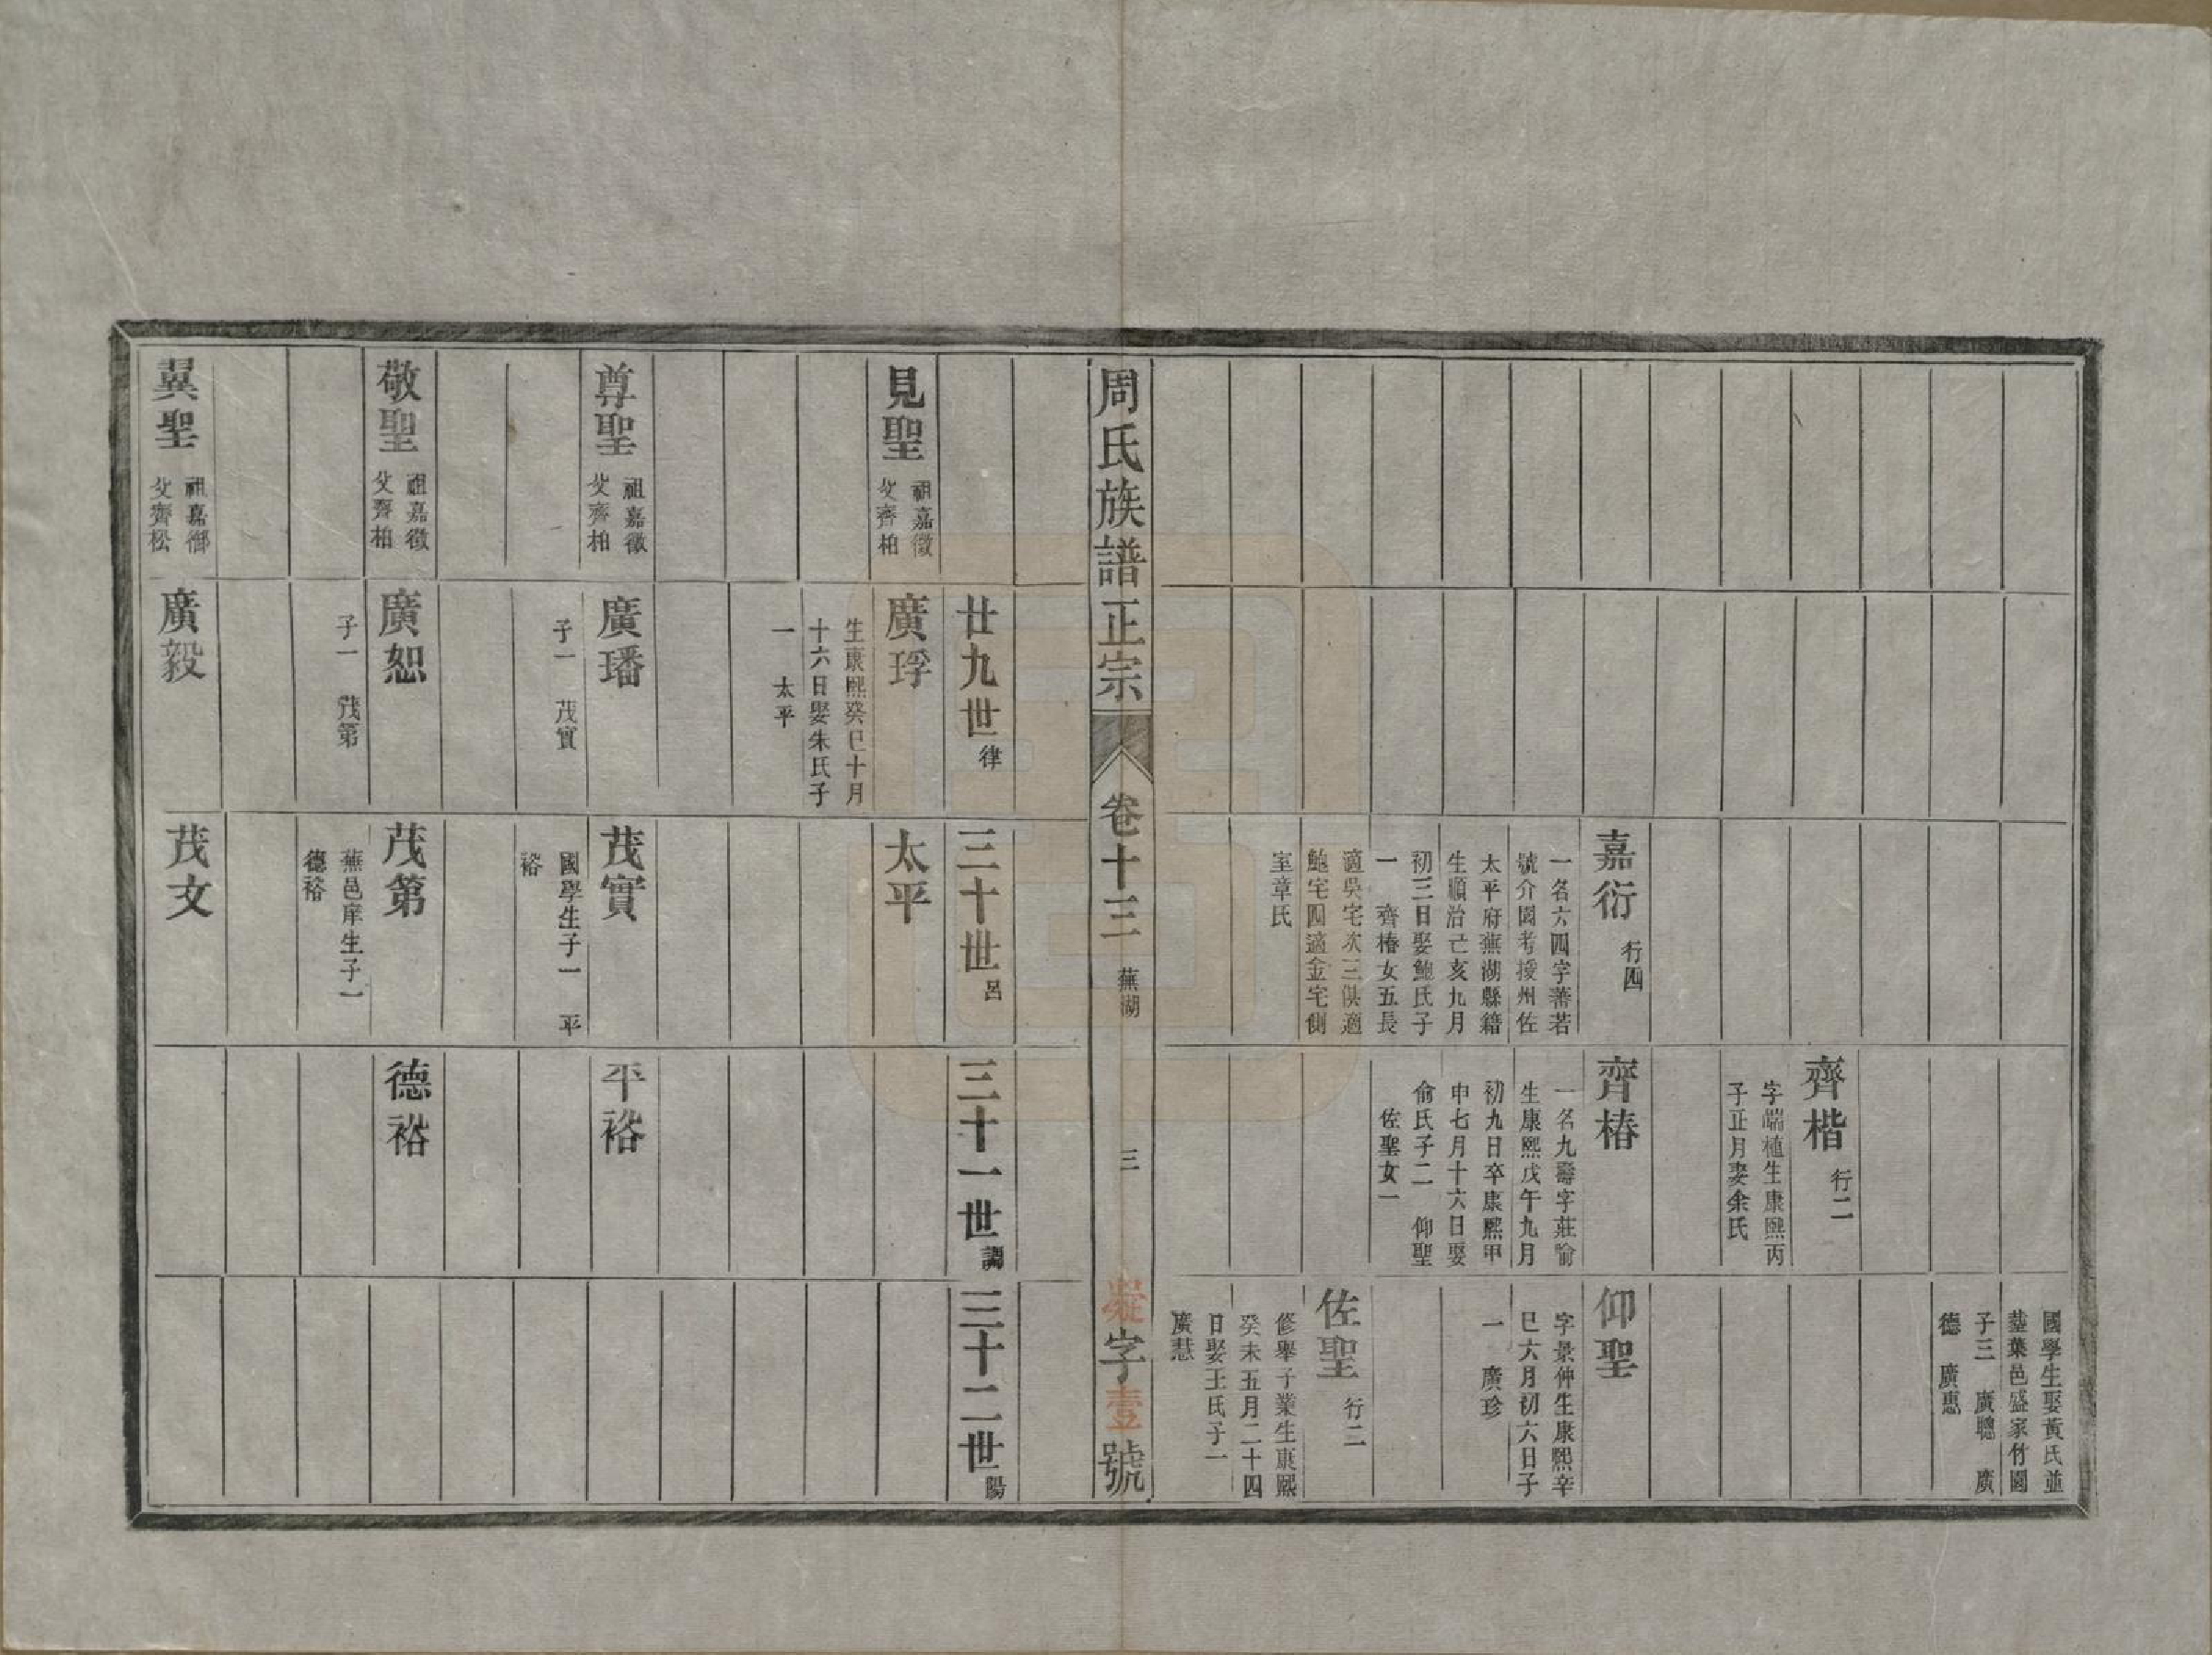 嘉衍 行四
一名六四字蕃若
號介園考授州佐
太平府蕪湖縣籍
生順治己亥九月
初三日娶鮑氏子
一 齊椿女五長
適吳宅次三俱適
鮑宅四適金宅側
室章氏
齊楷 行二
字端植生康熙丙
子正月娶余氏
齊椿
一名九壽字莊喻
生康熙戊午九月
初九日卒康熙甲
申七月十六日娶
俞氏子二 仰聖
佐聖女一
國學生娶黃氏並
塟葉邑盛家竹園
子三 廣聰 廣
德 廣惠
仰聖
字景仲生康熙辛
巳六月初六日子
一 廣珍
佐聖 行二
修舉子業生康熙
癸未五月二十四
日娶王氏子一
廣慧
周氏族譜正宗 卷十三 蕪湖 三 字壹號
見聖 祖嘉徵
父齊柏
尊聖 祖嘉徵
父齊柏
敬聖 祖嘉徵
父齊柏
翼聖 祖嘉御
父齊松
廿九世 律
廣琈
生康熙癸巳十月
十六日娶朱氏子
一 太平
廣璠
子一 茂實
廣恕
子一 茂第
廣毅
三十世 呂
太平
茂實
國學生子一 平
裕
茂第
蕪邑庠生子一
德裕
茂文
三十一世 調
平裕
德裕
三十二世 陽